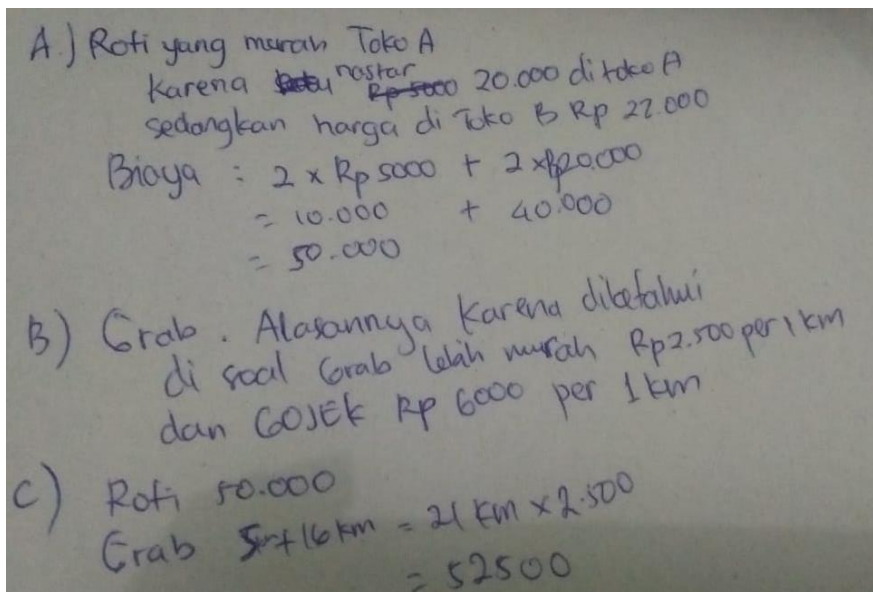 A.) Roti yang murah Toko A
Karena nastar 20.000 di toko A
sedangkan harga di Toko B Rp 22.000
Biaya : 2 x Rp 5000 + 2 x Rp20.000
= 10.000 + 40.000
= 50.000
B) Grab. Alasannya Karena diketahui
di soal Grab lebih murah Rp2.500 per 1 km
dan GOJEK Rp 6000 per 1 km
C) Roti 50.000
Grab 5 + 16 km = 21 km x 2.500
= 52500